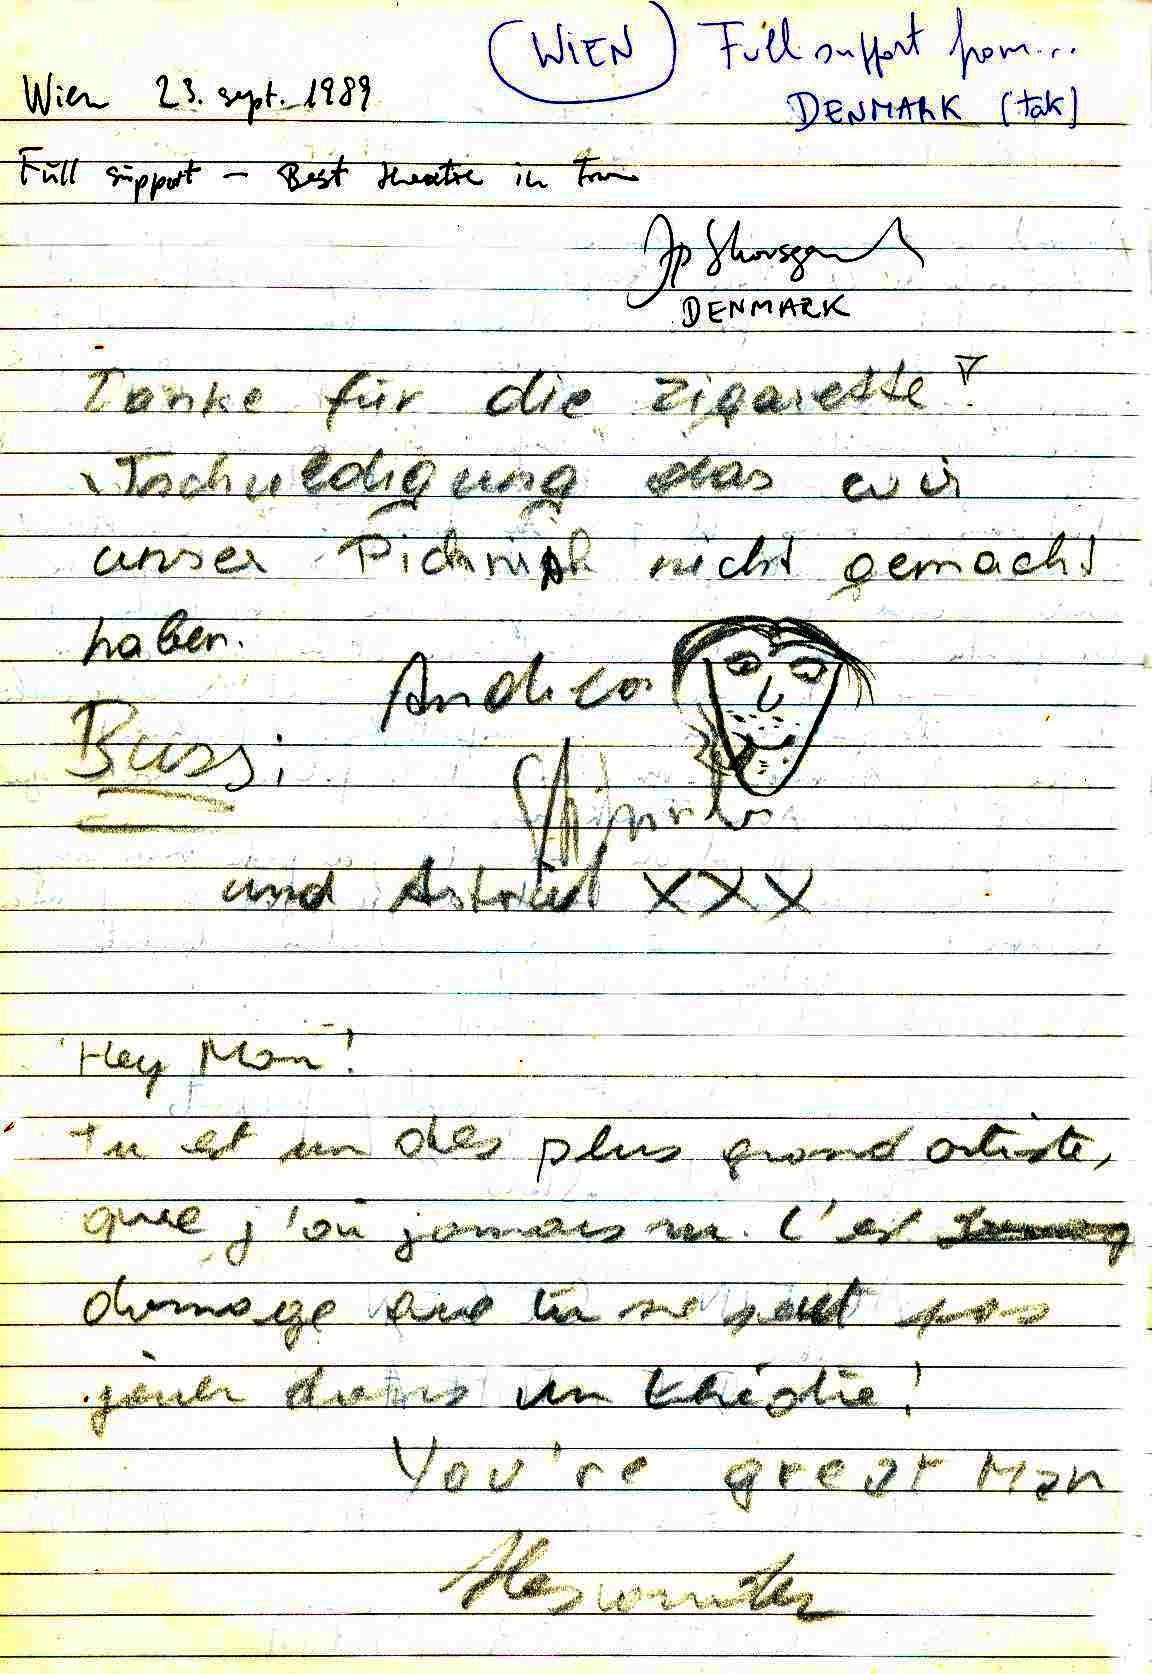 (WIEN) Full support from...
DENMARK (tak)
Wien 23. sept. 1989
Full support - Best theatre in Town
DENMARK
Danke für die Zigarette!
Tschuldigung das wir
unser Picknick nicht gemacht
haben.
Andrea
Bussi
und Astrid XXX
Hey Man!
tu est un des plus grand artiste,
que j'ai jamais vu. C'est
domage que tu ne peut pas
jouer dans un théâtre!
You're great Man
Alexander